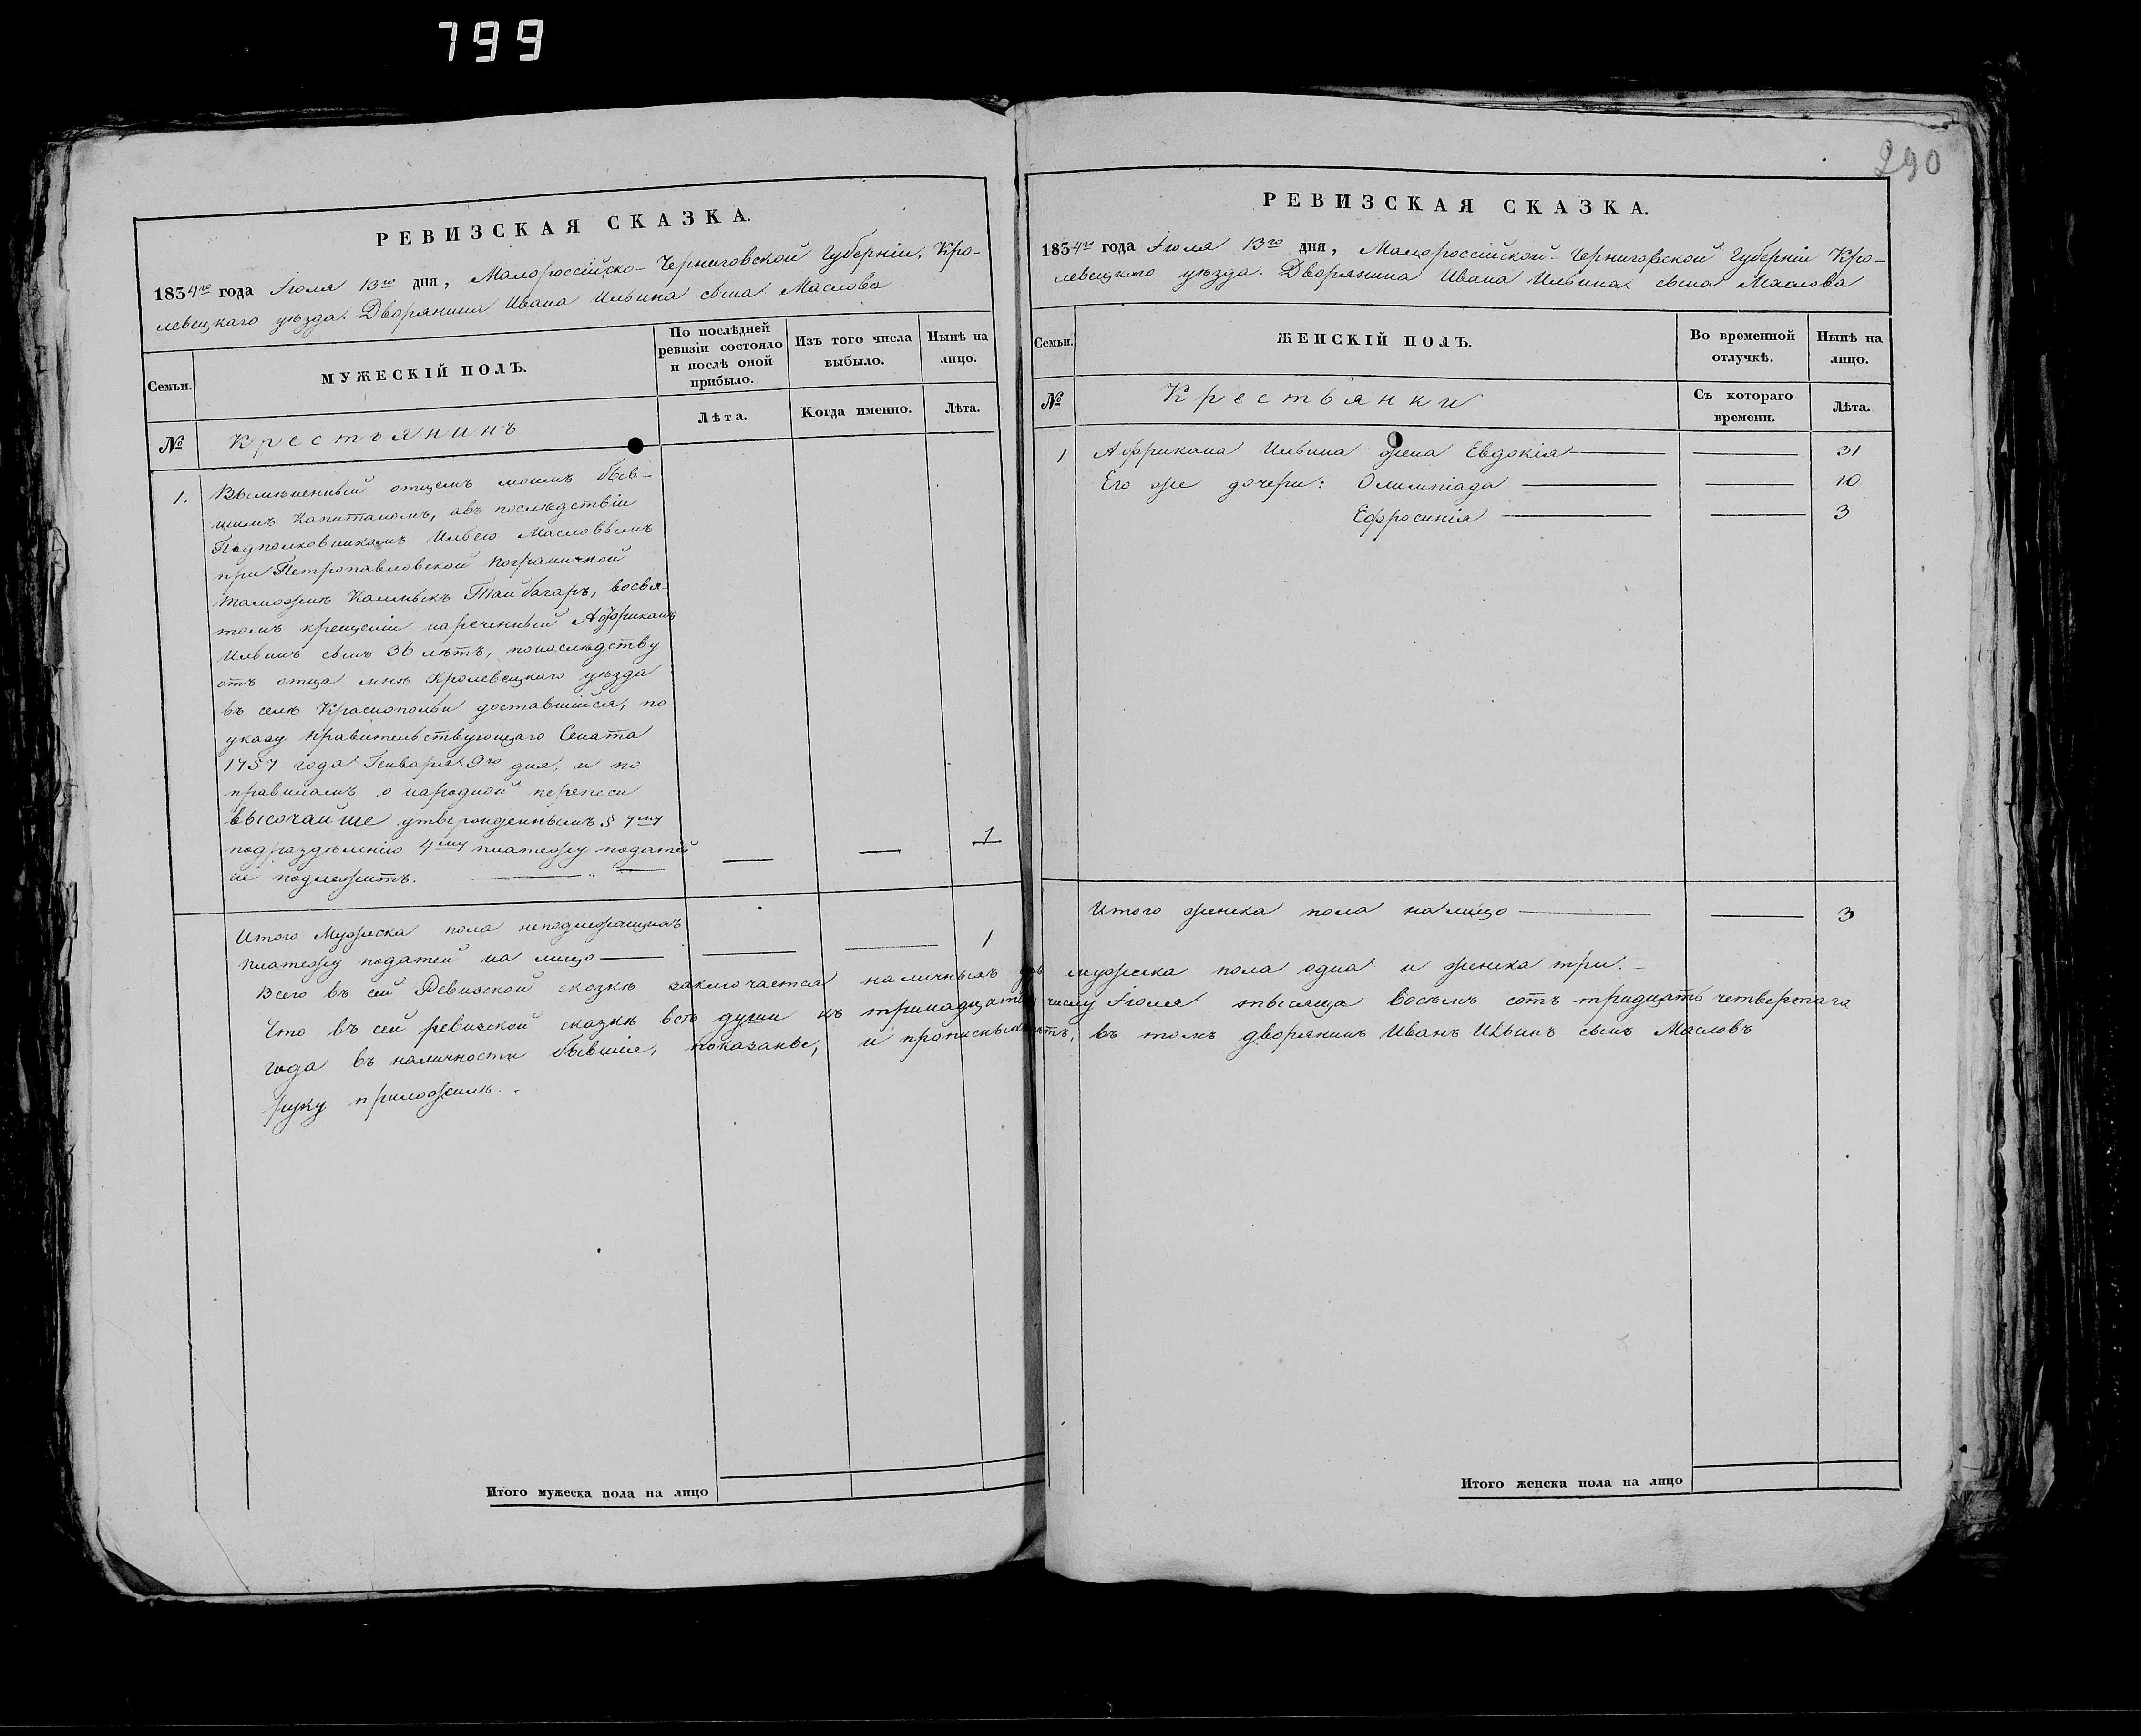 799
290
РЕВИЗСКАЯ СКАЗКА.
1834го года Іюля 13го дня, Малороссійско-Черниговской Губерніи, Кро-
левецкаго уѣзда. Дворянина Ивана Ильина сына Маслова
Семьи.
МУЖЕСКІЙ ПОЛЪ.
По послѣдней
ревизіи состояло
и послѣ оной
прибыло.
Изъ того числа
выбыло.
Нынѣ на
лицо.
№
Крестьянинъ
Лѣта.
Когда именно.
Лѣта.
1. Вымѣненный отцемъ моимъ быв-
шимъ Капитаномъ, а въ послѣдствіи
Подполковникомъ Ильею Масловымъ
при Петропавловской пограничной
таможнѣ Калмыкъ Таибагаръ, восвя-
томъ крещеніи нареченный Африканъ
Ильинъ сынъ 36 лѣтъ, понаслѣдству
отъ отца мнѣ Кролевецкаго уѣзда
въ селѣ Краснопольи доставшійся, по
указу Правительствующаго Сената
1757 года Генваря 9го дня, и по
правиламъ о народной переписи
высочайше утвержденнымъ § 7му
подраздѣленію 4му платежу податей
не подлежитъ. 1
Итого Мужеска пола неподлежащихъ
платежу податей на лицо 1
Всего въ сей Ревизской сказкѣ заключается наличныхъ мужеска пола одна и женска три.
Что въ сей ревизской сказкѣ всѣ души къ тринадцатому числу Іюля тысяща восемь сотъ тридцать четвертаго
года въ наличности бывшія, показаны, и прописныхъ нѣтъ, въ томъ дворянинъ Иванъ Ильинъ сынъ Масловъ
руку приложилъ.
Итого мужеска пола на лицо
РЕВИЗСКАЯ СКАЗКА.
1834го года Іюля 13го дня, Малороссійской-Черниговской Губерніи Кро-
левецкаго уѣзда. Дворянина Ивана Ильина сына Маслова
Семьи.
ЖЕНСКІЙ ПОЛЪ.
Во временной
отлучкѣ.
Нынѣ на
лицо.
№
Крестьянки
Съ котораго
времени.
Лѣта.
1 Африкана Ильина жена Евдокія 31
Его же дочери: Олимпіада 10
Ефросинія 3
Итого женска пола налицо 3
Итого женска пола на лицо